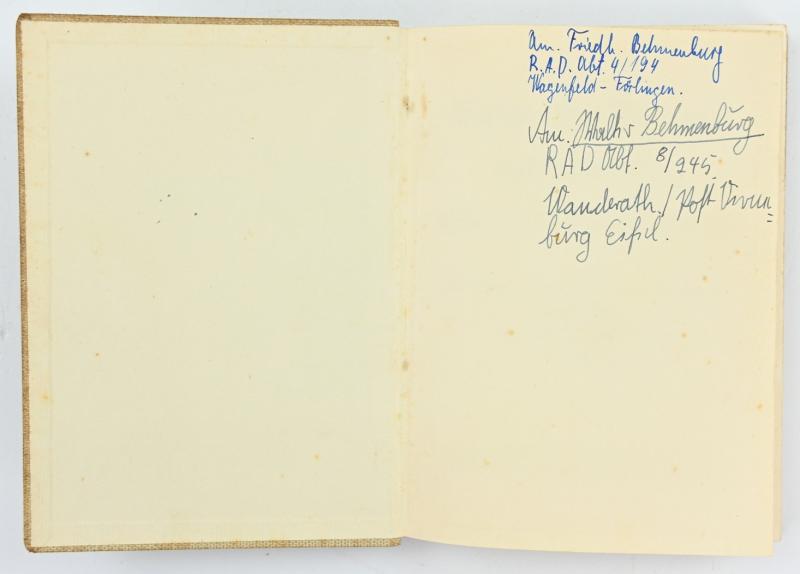 Am. Friedh. Behmenburg
R.A.D. Abt. 4/194
Wagenfeld - Förlingen.
Am. Walter Behmenburg
RAD Abt. 8/245.
Wanderath / Post Virne=
burg Eifel.